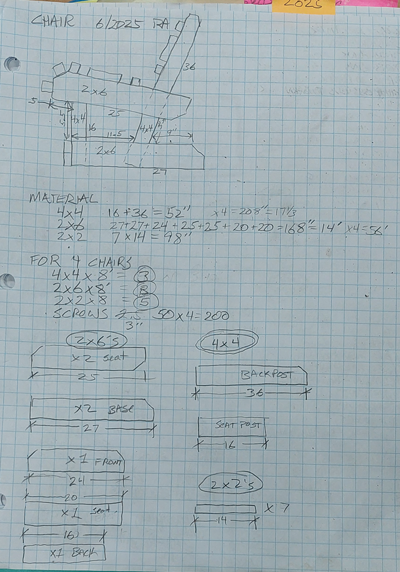 2025
CHAIR 6/2025 RA
36
2x6
5
25
4x4
16
11.5
4x4
4"
2x6
27
MATERIAL
4x4 16+36=52" x4=208"=17 1/3
2x6 27+27+24+25+25+20+20=168"=14' x4=56'
2x2 7x14=98"
FOR 4 CHAIRS
4x4x8'=3
2x6x8'=8
2x2x8 =5
SCREWS 2.5 50x4=200
3"
2x6's 4x4
x2 Seat
25
BACKPOST
36
x2 BASE
27
SEAT POST
16
x1 FRONT
24
20
x1
16
x1 BACK
2x2's
x7
14